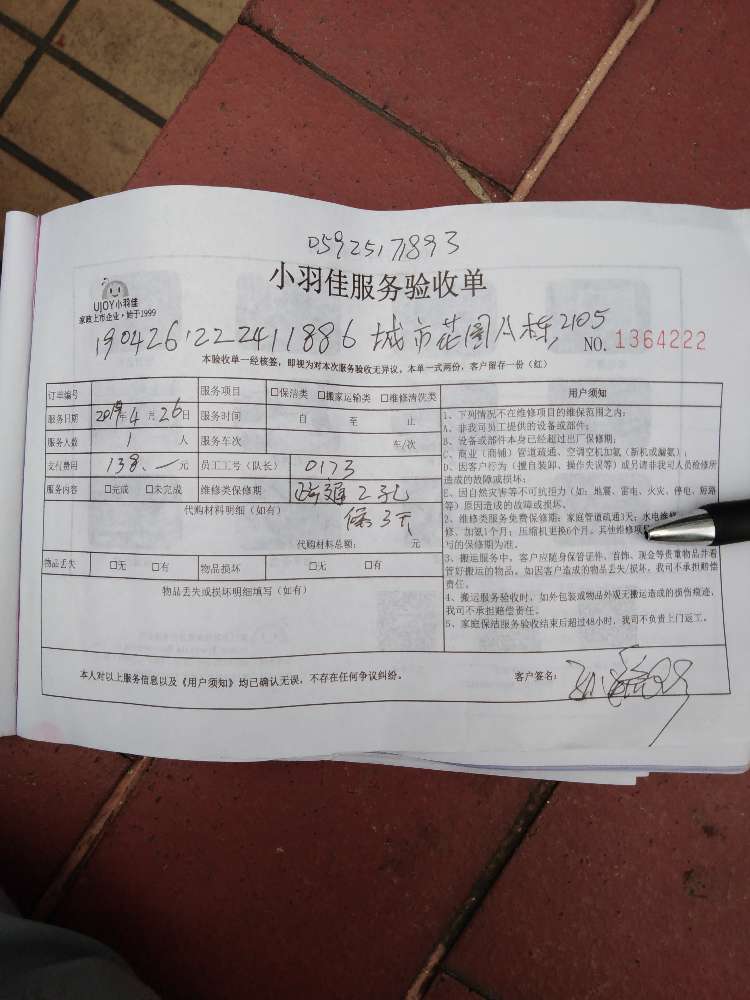 05925171893
小羽佳服务验收单
UJOY小羽佳
家政上市企业·始于1999
1904261222411886 城市花园A栋,2105
NO. 1364222
本验收单一经核签,即视为对本次服务验收无异议。本单一式两份,客户留存一份(红)
订单编号 服务项目 □保洁类 □搬家运输类 □维修清洗类
服务日期 2019年4月26日 服务时间 自 至 止
服务人数 1 人 服务车次 车/次
支付费用 138.— 元 员工工号(队长) 0173
服务内容 □完成 □未完成 维修类保期 疏通2孔
保3天
代购材料明细(如有)
代购材料总额: 元
物品丢失 □无 □有 物品损坏 □无 □有
物品丢失或损坏明细填写(如有)
用户须知
1、下列情况不在维修项目的维保范围之内:
A、非我司员工提供的设备或部件;
B、设备或部件本身已经超过出厂保修期;
C、商业(商铺)管道疏通、空调空机加氨(新机或漏氨);
D、因客户行为(擅自装卸、操作失误等)或另请非我司人员检修所
造成的故障或损坏;
E、因自然灾害等不可抗力(如:地震、雷电、火灾、停电、短路
等)原因造成的故障或损坏。
2、维修类服务免费保修期:家庭管道疏通3天;水电维修
修、加氨1个月;压缩机更换6个月。其他维修项
写的保修期为准。
3、搬运服务中,客户应随身保管证件、首饰、现金等贵重物品并看
管好搬运的物品。如因客户造成的物品丢失/损坏,我司不承担赔偿
责任。
4、搬运服务验收时,如外包装或物品外观无搬运造成的损伤痕迹,
我司不承担赔偿责任。
5、家庭保洁服务验收结束后超过48小时,我司不负责上门返工。
本人对以上服务信息以及《用户须知》均已确认无误,不存在任何争议纠纷。
客户签名: